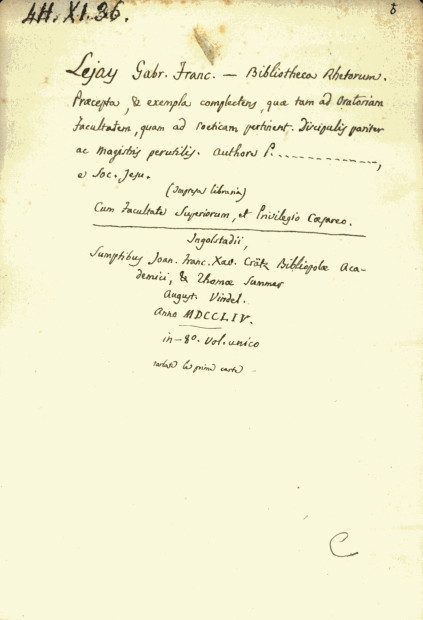 4H. XI. 36.
Lejay Gabr. Franc. — Bibliotheca Rhetorum.
Præcepta, & exempla complectens, quæ tam ad Oratoriam
Facultatem, quam ad Poeticam pertinent. Discipulis pariter
ac Magistris perutilis. Authore P. ------------,
e Soc. Jesu.
(Impresa libraria)
Cum Facultate Superiorum, et Privilegio Cæsareo.
Ingolstadii,
Sumptibus Joan. Franc. Xav. Crätz Bibliopolæ Aca-
demici, & Thomæ Summer
August. Vindel.
Anno MDCCLIV.
in-8º. Vol. unico
le prime carte
C